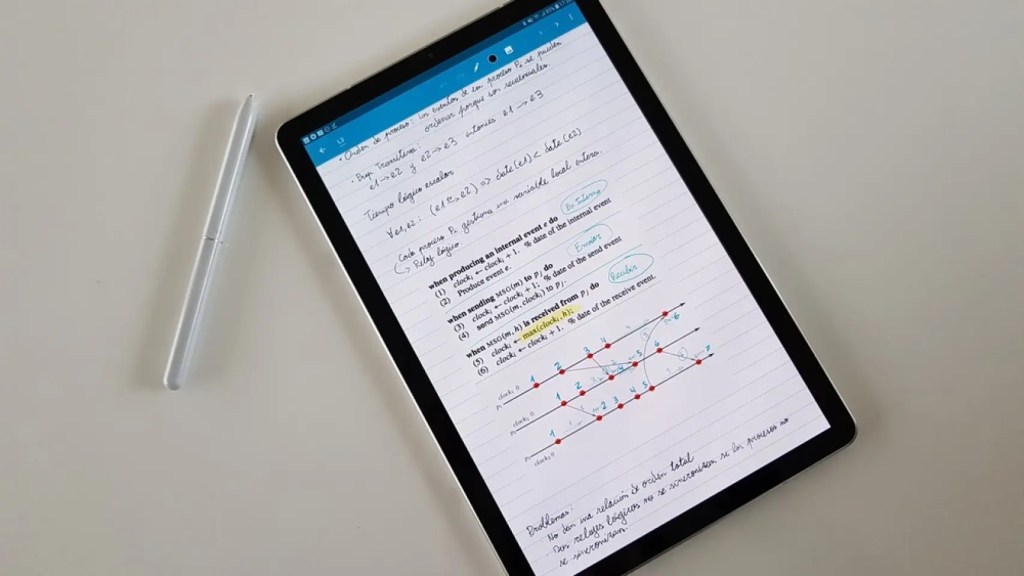 • Orden de proceso: los eventos de un proceso Pi se pueden
ordenar porque son secuenciales.
• Prop. Transitiva:
e1 → e2 y e2 → e3 entonces e1 → e3
Tiempo lógico escalar
∀e1,e2: (e1 → e2) => date(e1) < date(e2)
Cada proceso Pi gestiona una variable local entera.
↳ Reloj lógico.
Ev. Interno
when producing an internal event e do
(1) clocki ← clocki + 1; % date of the internal event
(2) Produce event e.
Enviar
when sending MSG(m) to pj do
(3) clocki ← clocki + 1; % date of the send event
(4) send MSG(m, clocki) to pj.
Recibir
when MSG(m, h) is received from pj do
(5) clocki ← max(clocki, h);
(6) clocki ← clocki + 1. % date of the receive event.
clock1 0
1 2 3 4 6
P1
clock2 0
1 2 5 6
P2
1 2 3 4 5 7
clock3 0
Problemas:
No dan una relación de orden total
Dos relojes lógicos no se sincronizan si los procesos no
se sincronizan.